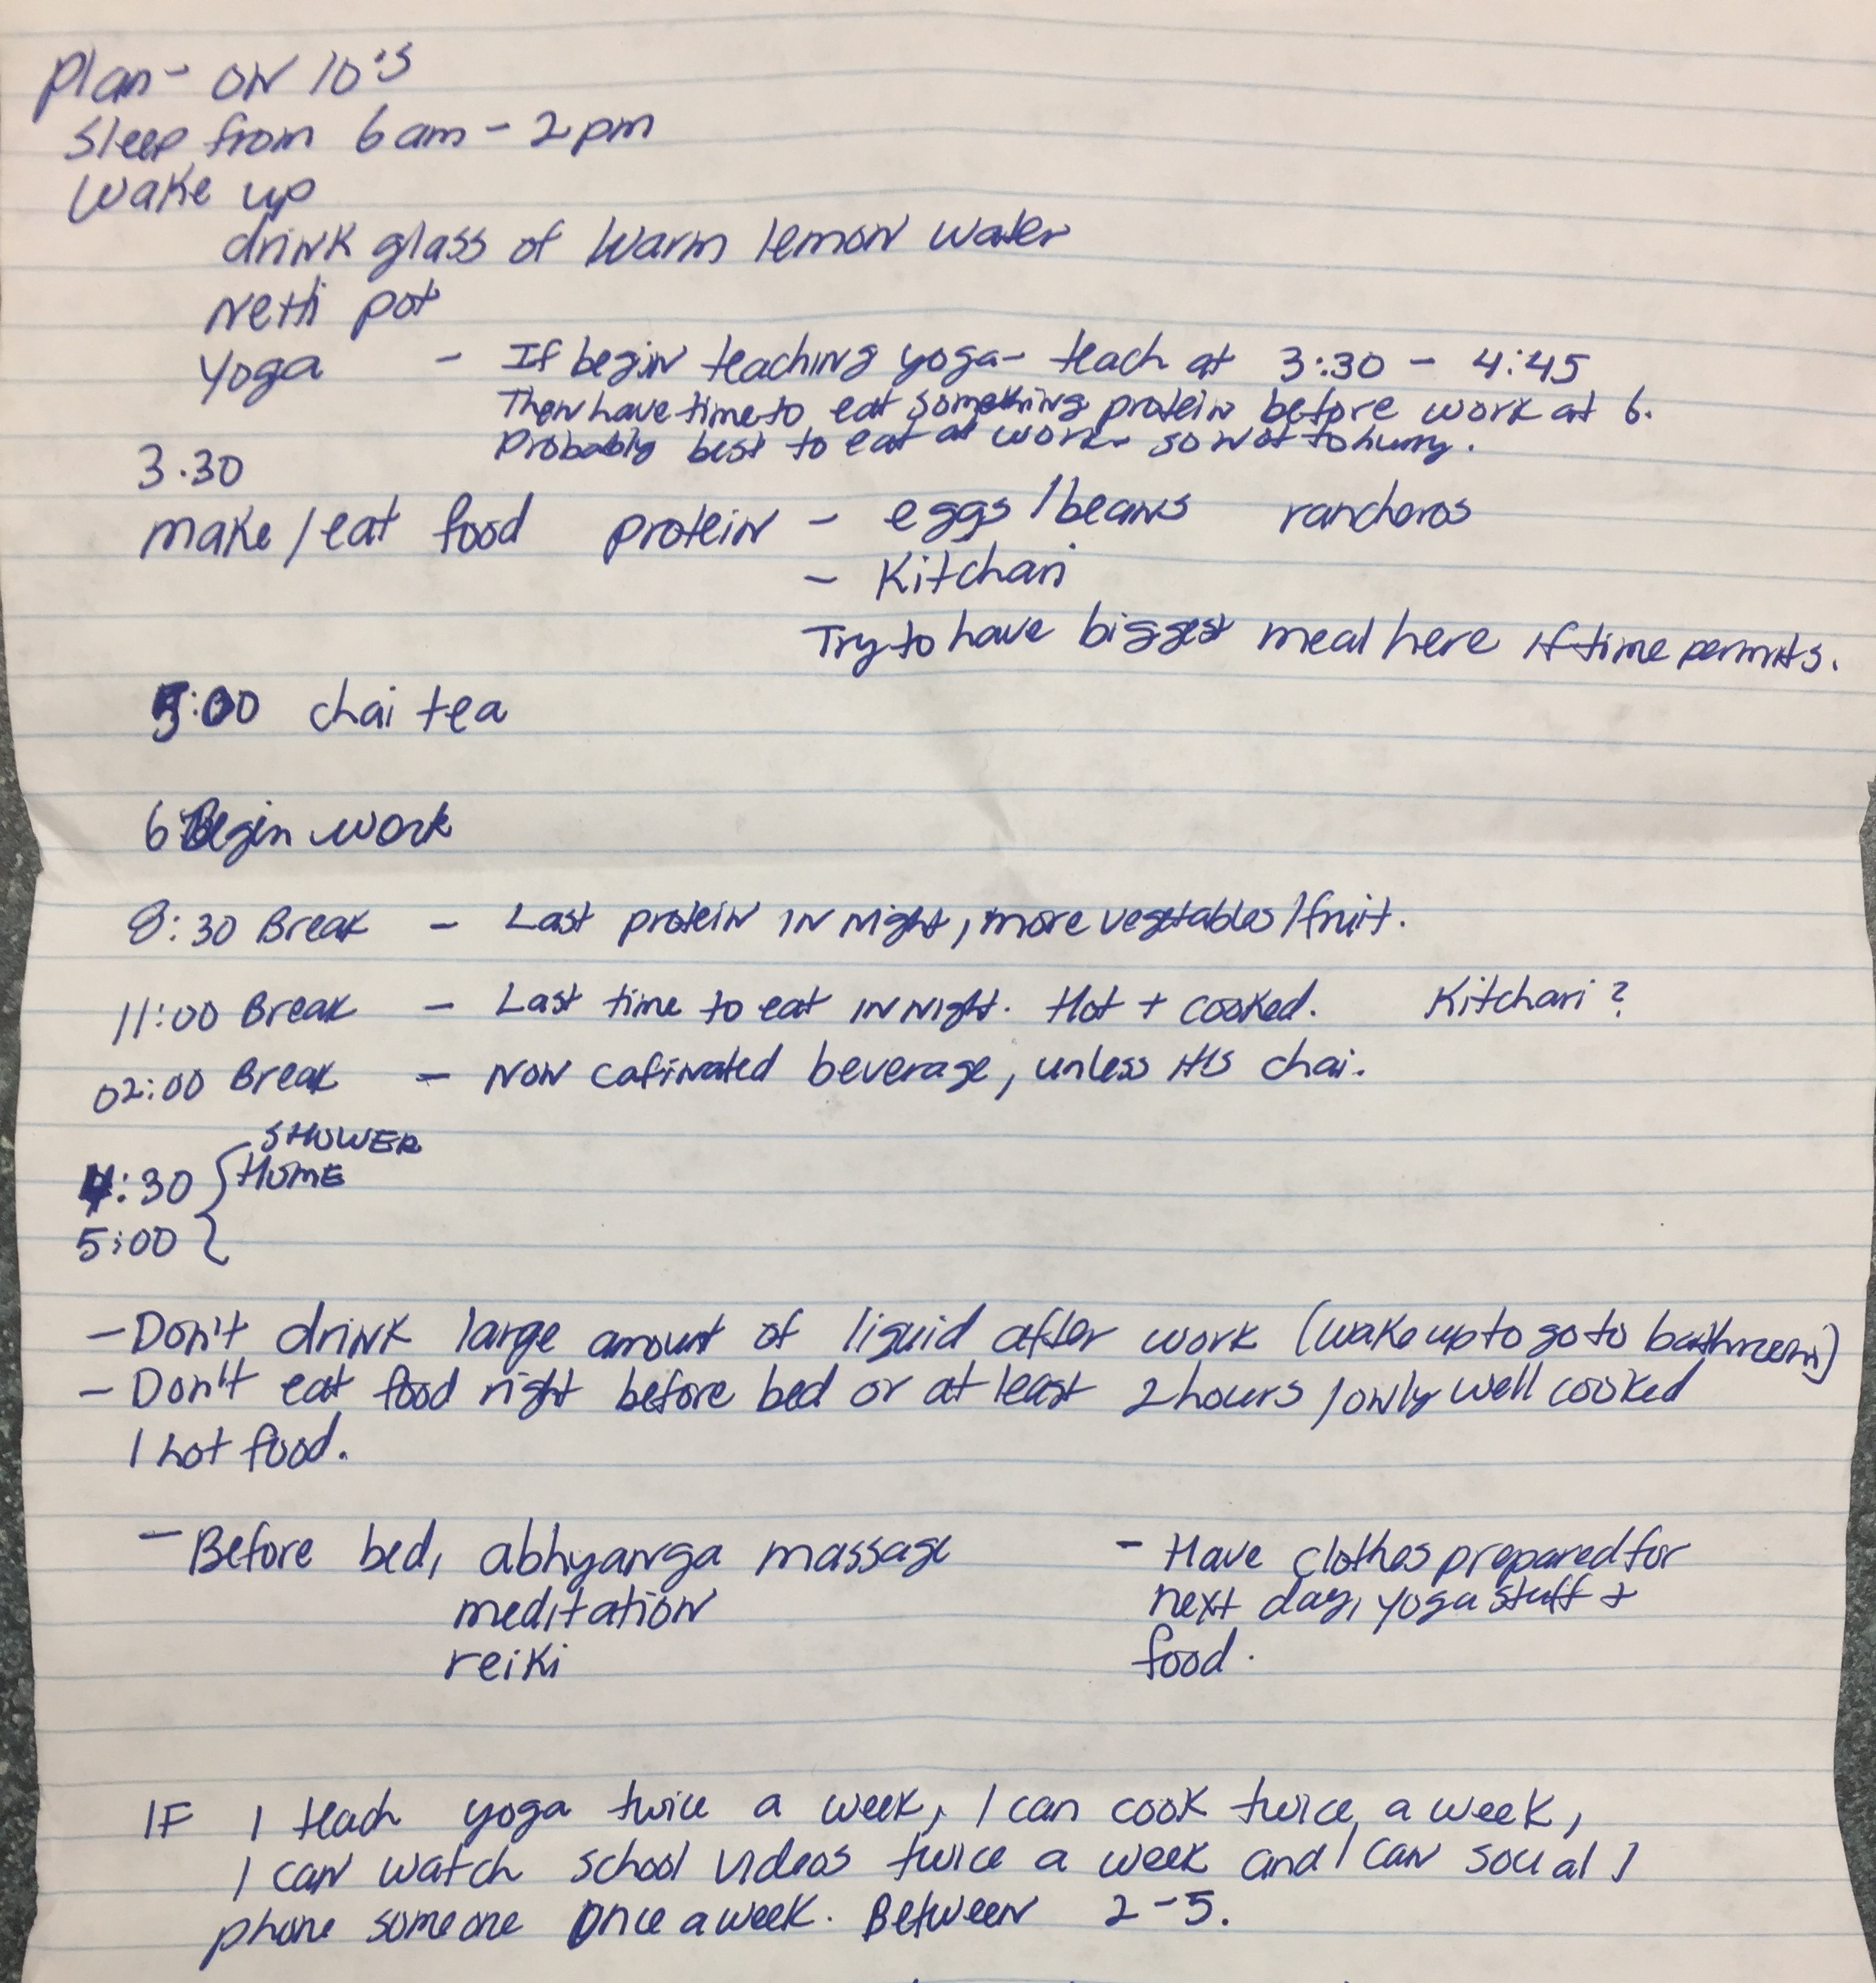 Plan - ON 10's
Sleep from 6am - 2pm
Wake up
drink glass of warm lemon water
Netti pot
Yoga - If begin teaching yoga - teach at 3:30 - 4:45
Then have time to eat something protein before work at 6.
Probably best to eat at work so not to hurry.
3.30
make/eat food protein - eggs/beans rancheros
- Kitchari
Try to have biggest meal here if time permits.
5:00 chai tea
6 Begin work
8:30 Break - Last protein in night, more vegetables/fruit.
11:00 Break - Last time to eat in night. Hot + cooked. Kitchari?
02:00 Break - Non cafinated beverage, unless its chai.
SHOWER
4:30 { HOME
5:00 {
- Don't drink large amount of liquid after work (wake up to go to bathroom)
- Don't eat food right before bed or at least 2 hours / only well cooked
/ hot food.
- Before bed, abhyanga massage - Have clothes prepared for
meditation next day, yoga stuff +
reiki food.
IF I teach yoga twice a week, I can cook twice a week,
I can watch school videos twice a week and I can social /
phone someone once a week. Between 2-5.